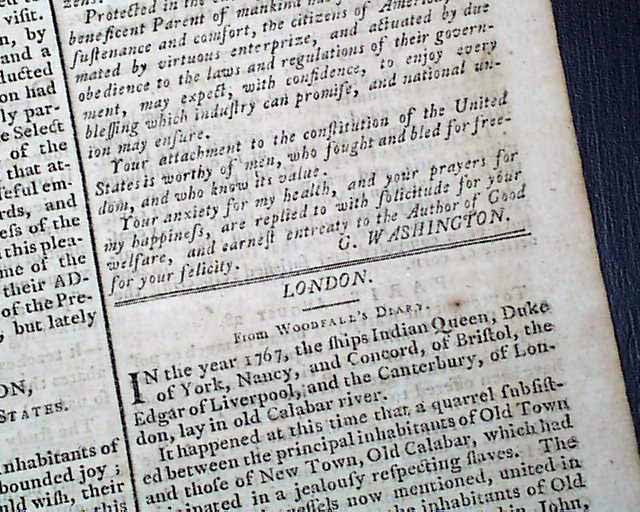 visit.
n, by
and a
ducted
on had
ly par-
e Select
of the
that at-
feful em-
rds, and
ess of the
this plea-
me of the
their AD-
of the Pre-
, but lately
ON,
STATES.
nhabitants of
bounded joy ;
uld wiſh, their
this
Protected in the
beneficent Parent of mankind
ſuſtenance and comfort, the citizens of America,
mated by virtuous enterprize, and actuated by due
obedience to the laws and regulations of their govern-
ment, may expect, with confidence, to enjoy every
bleſſing which induſtry can promiſe, and national un-
ion may enſure.
Your attachment to the conſtitution of the United
States is worthy of men, who fought and bled for free-
dom, and who know its value.
Your anxiety for my health, and your prayers for
my happineſs, are replied to with ſolicitude for your
welfare, and earneſt entreaty to the Author of Good
for your felicity.
G. WASHINGTON.
LONDON.
From WOODFALL's DIARY.
IN the year 1767, the ſhips Indian Queen, Duke
of York, Nancy, and Concord, of Briſtol, the
Edgar of Liverpool, and the Canterbury, of Lon-
don, lay in old Calabar river.
It happened at this time that a quarrel ſubſiſt-
ed between the principal inhabitants of Old Town
and thoſe of New Town, Old Calabar, which had
inated in a jealouſy reſpecting ſlaves. The
eſſels now mentioned, united in
the inhabitants of Old
John,